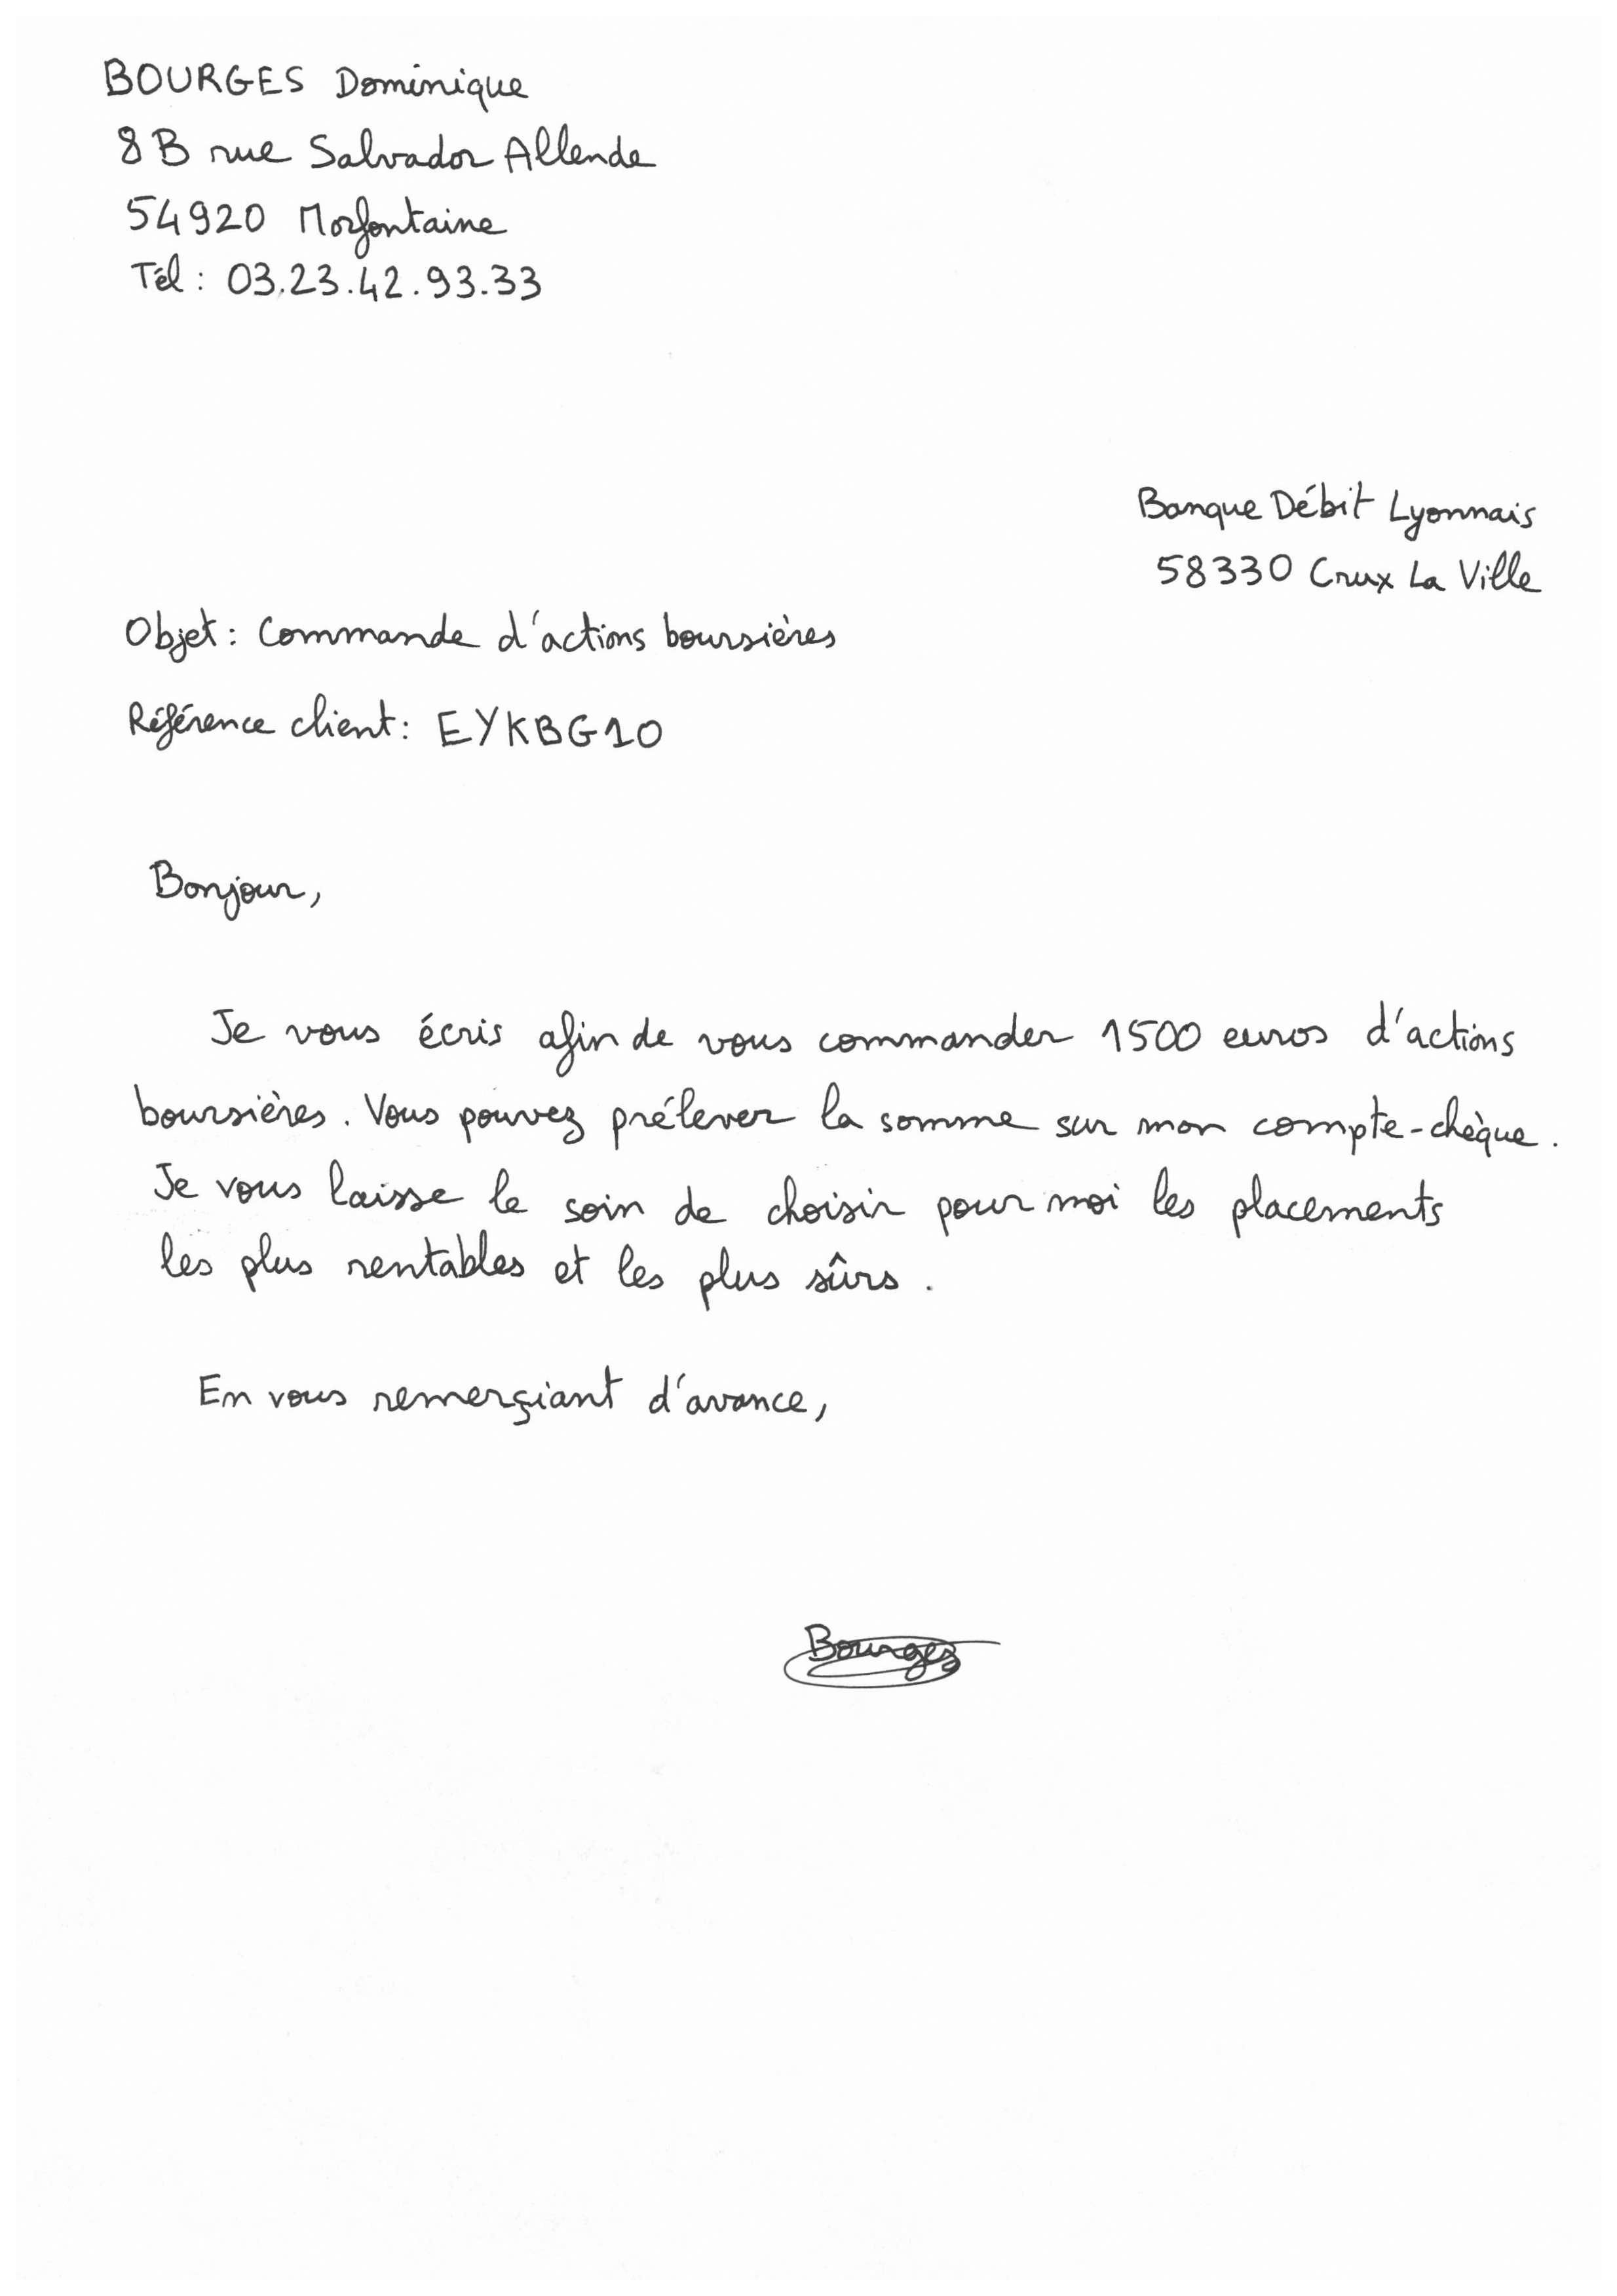 BOURGES Dominique
8B rue Salvador Allende
54920 Morfontaine
Tél : 03.23.42.93.33
Banque Débit Lyonnais
58330 Crux La Ville
Objet : Commande d'actions boursières
Référence client : EYKBG10
Bonjour,
Je vous écris afin de vous commander 1500 euros d'actions
boursières. Vous pouvez prélever la somme sur mon compte-chèque.
Je vous laisse le soin de choisir pour moi les placements
les plus rentables et les plus sûrs.
En vous remerçiant d'avance,
Bourges